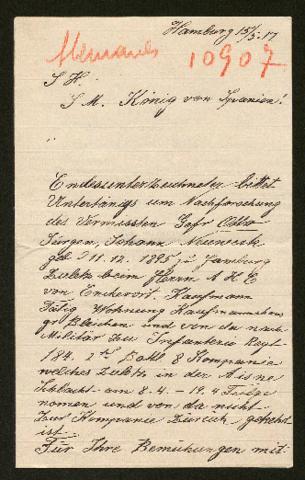 Hamburg 15/5.17
Alemanes
10907
S. H.
S. M. König von Spanien!
Endesunterzeichneter bittet
Untertänigs um Nachforschung
des Vermissten Gefr Otto
Jürgen, Johann
geb 11.12.1895 zu Hamburg
Zuletz beim Herrn A H C
von Kaufmann
Tätig Wohnung Kaufmannshaus
gr Bleichen und von da nach
Militär Zu Infanterie Regt
184. 2te Batl 8 Kompania
welches Zuletz in der Aisne
Schlacht am 8.4 – 19.4 Teilge
nomen und von da nicht
Zur Kompanie Zurück gekehrt
ist.
Für Ihre Bemühungen mit